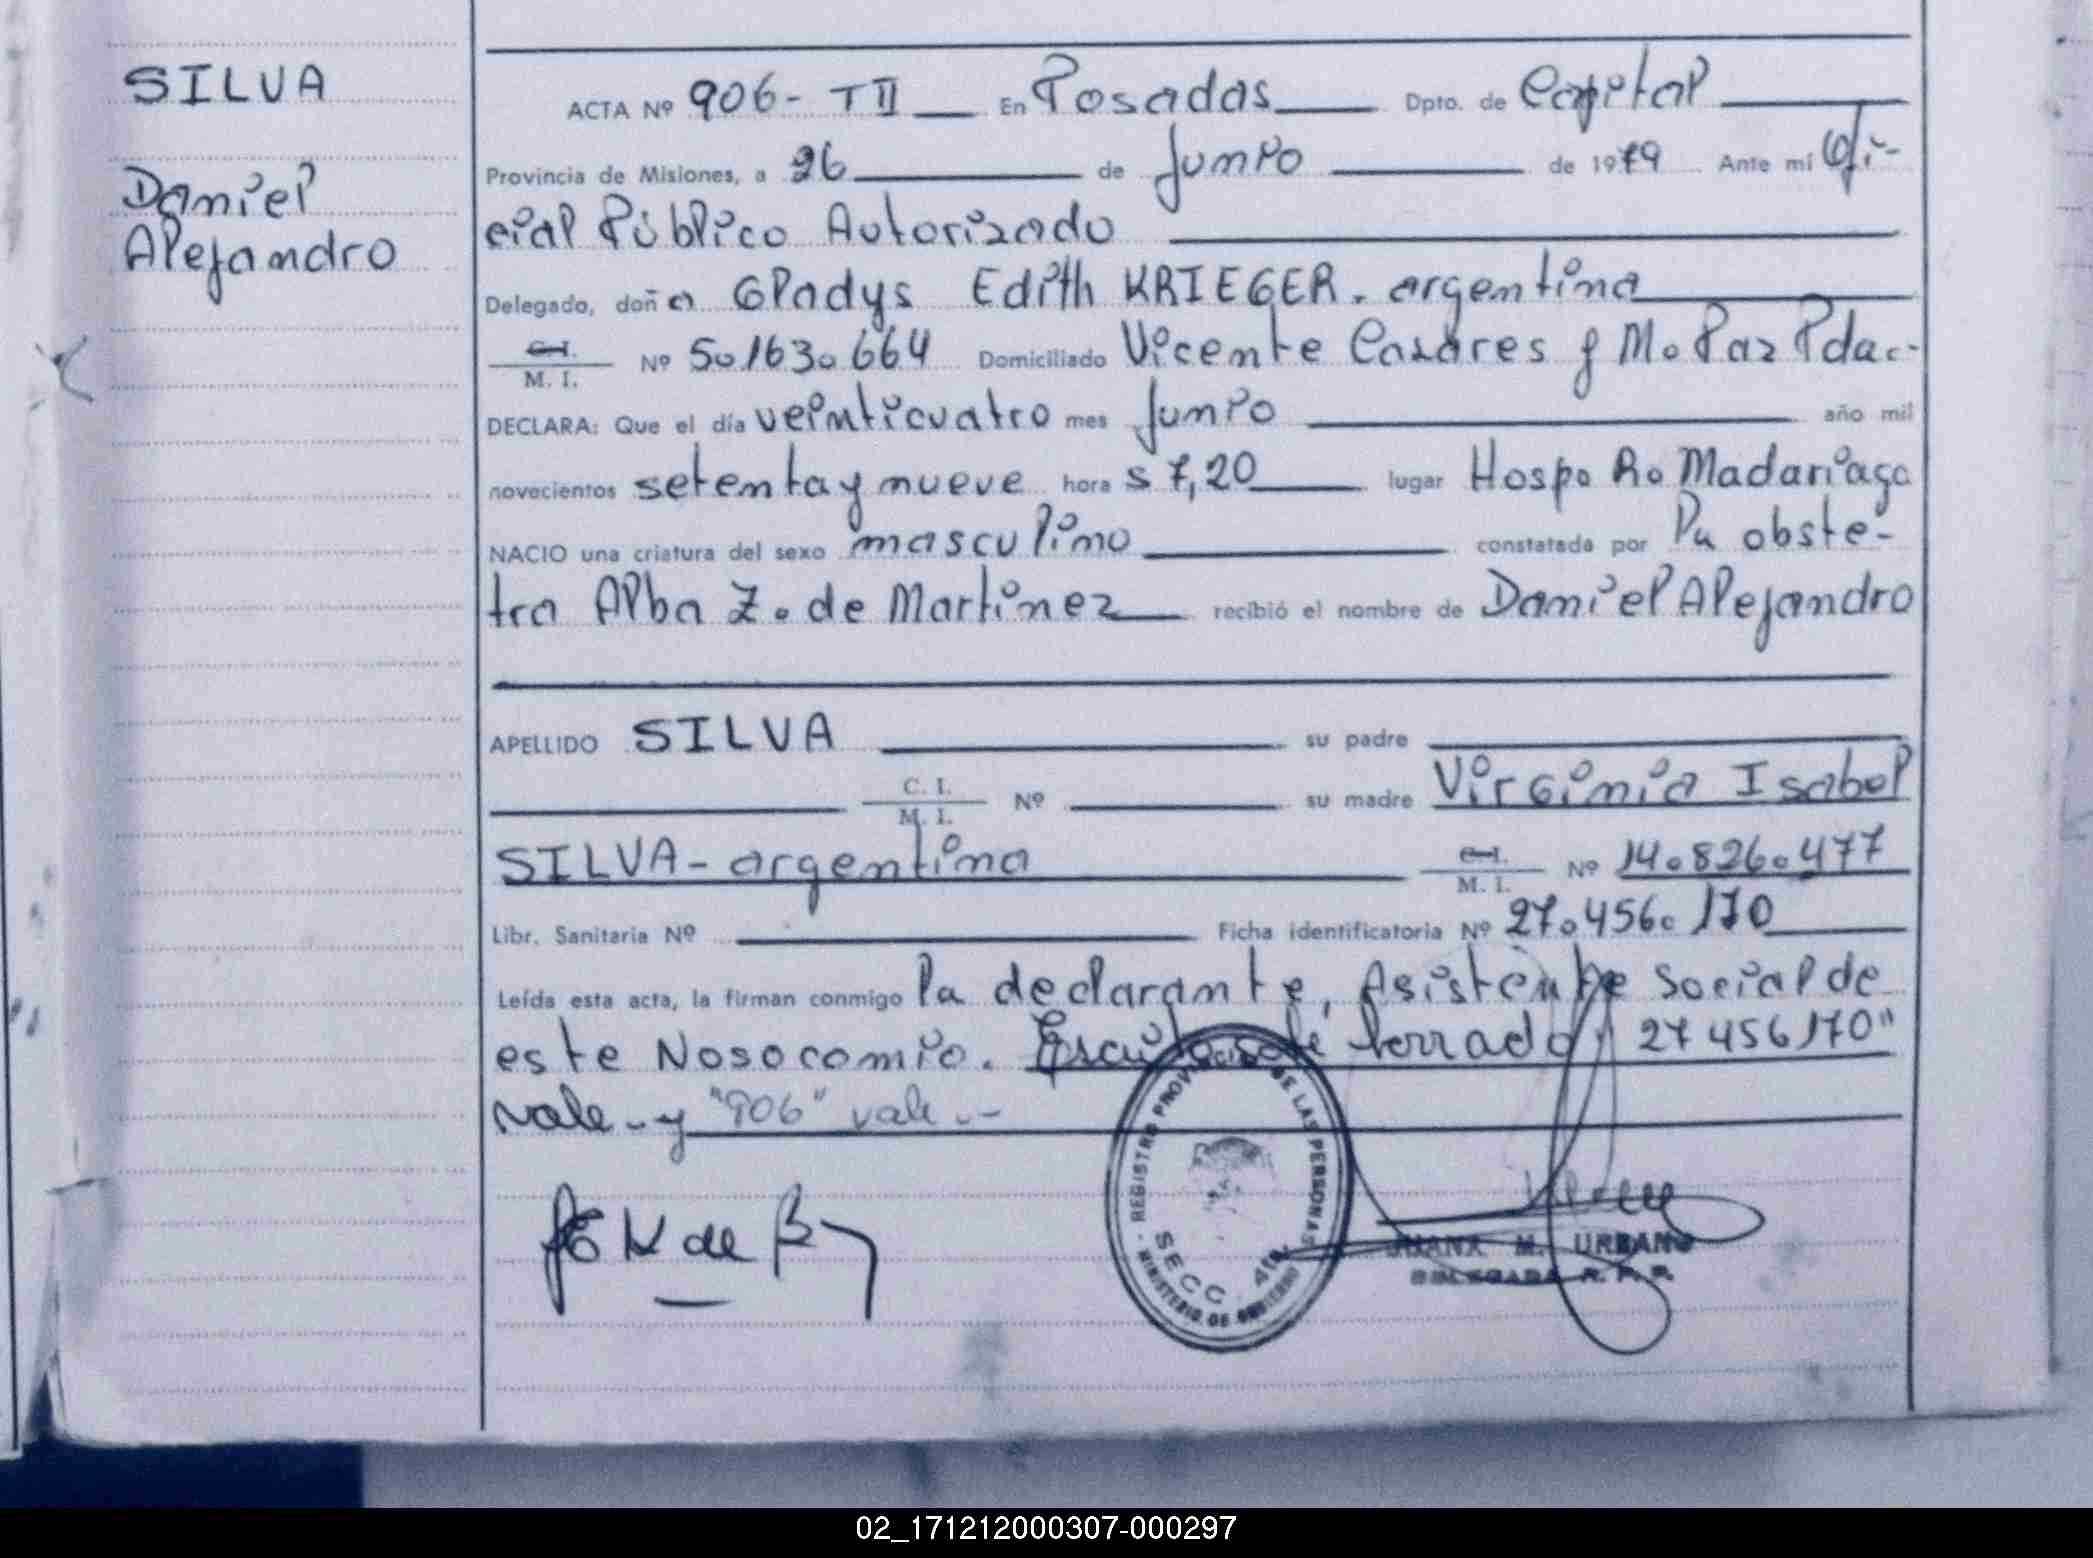 SILVA
Daniel
Alejandro
ACTA Nº 906- TII En Posadas Dpto. de Capital
Provincia de Misiones, a 26 de Junio de 1979 Ante mí Ofi-
cial Público Autorizado
Delegado, doña Gladys Edith KRIEGER. argentina
C.I. M. I. Nº 5.163.664 Domiciliado Vicente Casares y M. Paz Pdas.-
DECLARA: Que el día veinticuatro mes Junio año mil
novecientos setenta y nueve hora s 7,20 lugar Hosp. R. Madariaga
NACIO una criatura del sexo masculino constatada por la obste-
tra Alba Z. de Martinez recibió el nombre de Daniel Alejandro
APELLIDO SILVA su padre
C. I. M. I. Nº su madre Virginia Isabel
SILVA - argentina C.I. M. I. Nº 14.826.477
Libr. Sanitaria Nº Ficha identificatoria Nº 27.456.170
Leída esta acta, la firman conmigo la declarante, Asistente Social de
este Nosocomio. borrado 27 456 170"
vale - y "906" vale.-
REGISTRO PROVINCIAL DE LAS PERSONAS
MINISTERIO DE GOBIERNO
SECC. 4ta.
JUANA M. URBANO
DELEGADA R. P. P.
02_171212000307-000297